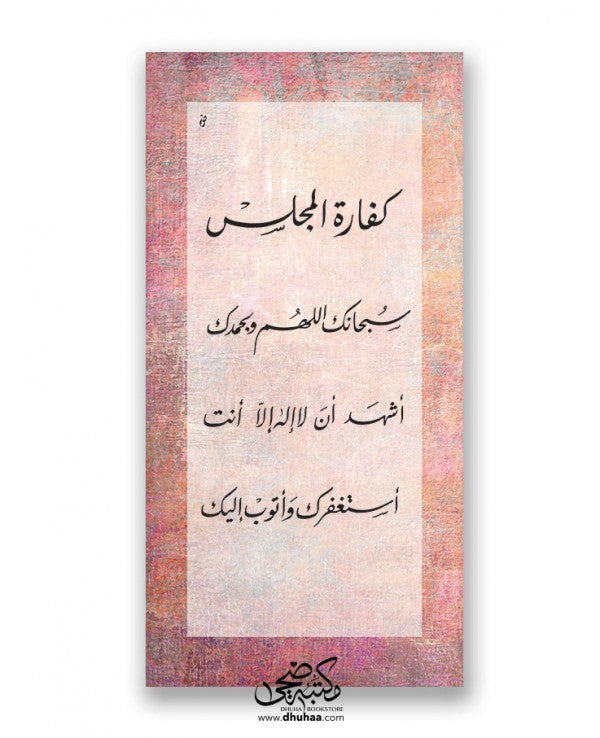 كفارة المجلس
سبحانك اللهم وبحمدك
أشهد أن لا إله إلا أنت
أستغفرك وأتوب إليك
مكتبة ضحى
DHUHA BOOKSTORE
www.dhuhaa.com